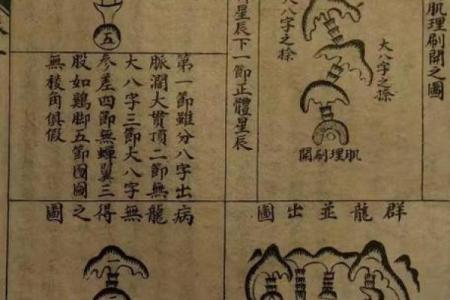 肌理刷開之圖
大八字之捺
大八字之捺
肌理刷開
星辰下一節正體星辰
五
第一節雖分八字出
脈濶大貫頂二節無
大八字三節大八字
參差四節無蟬翼三
股如鷄脚五節圓圓
無稜角俱假
群龍並出圖
病龍無得之圖